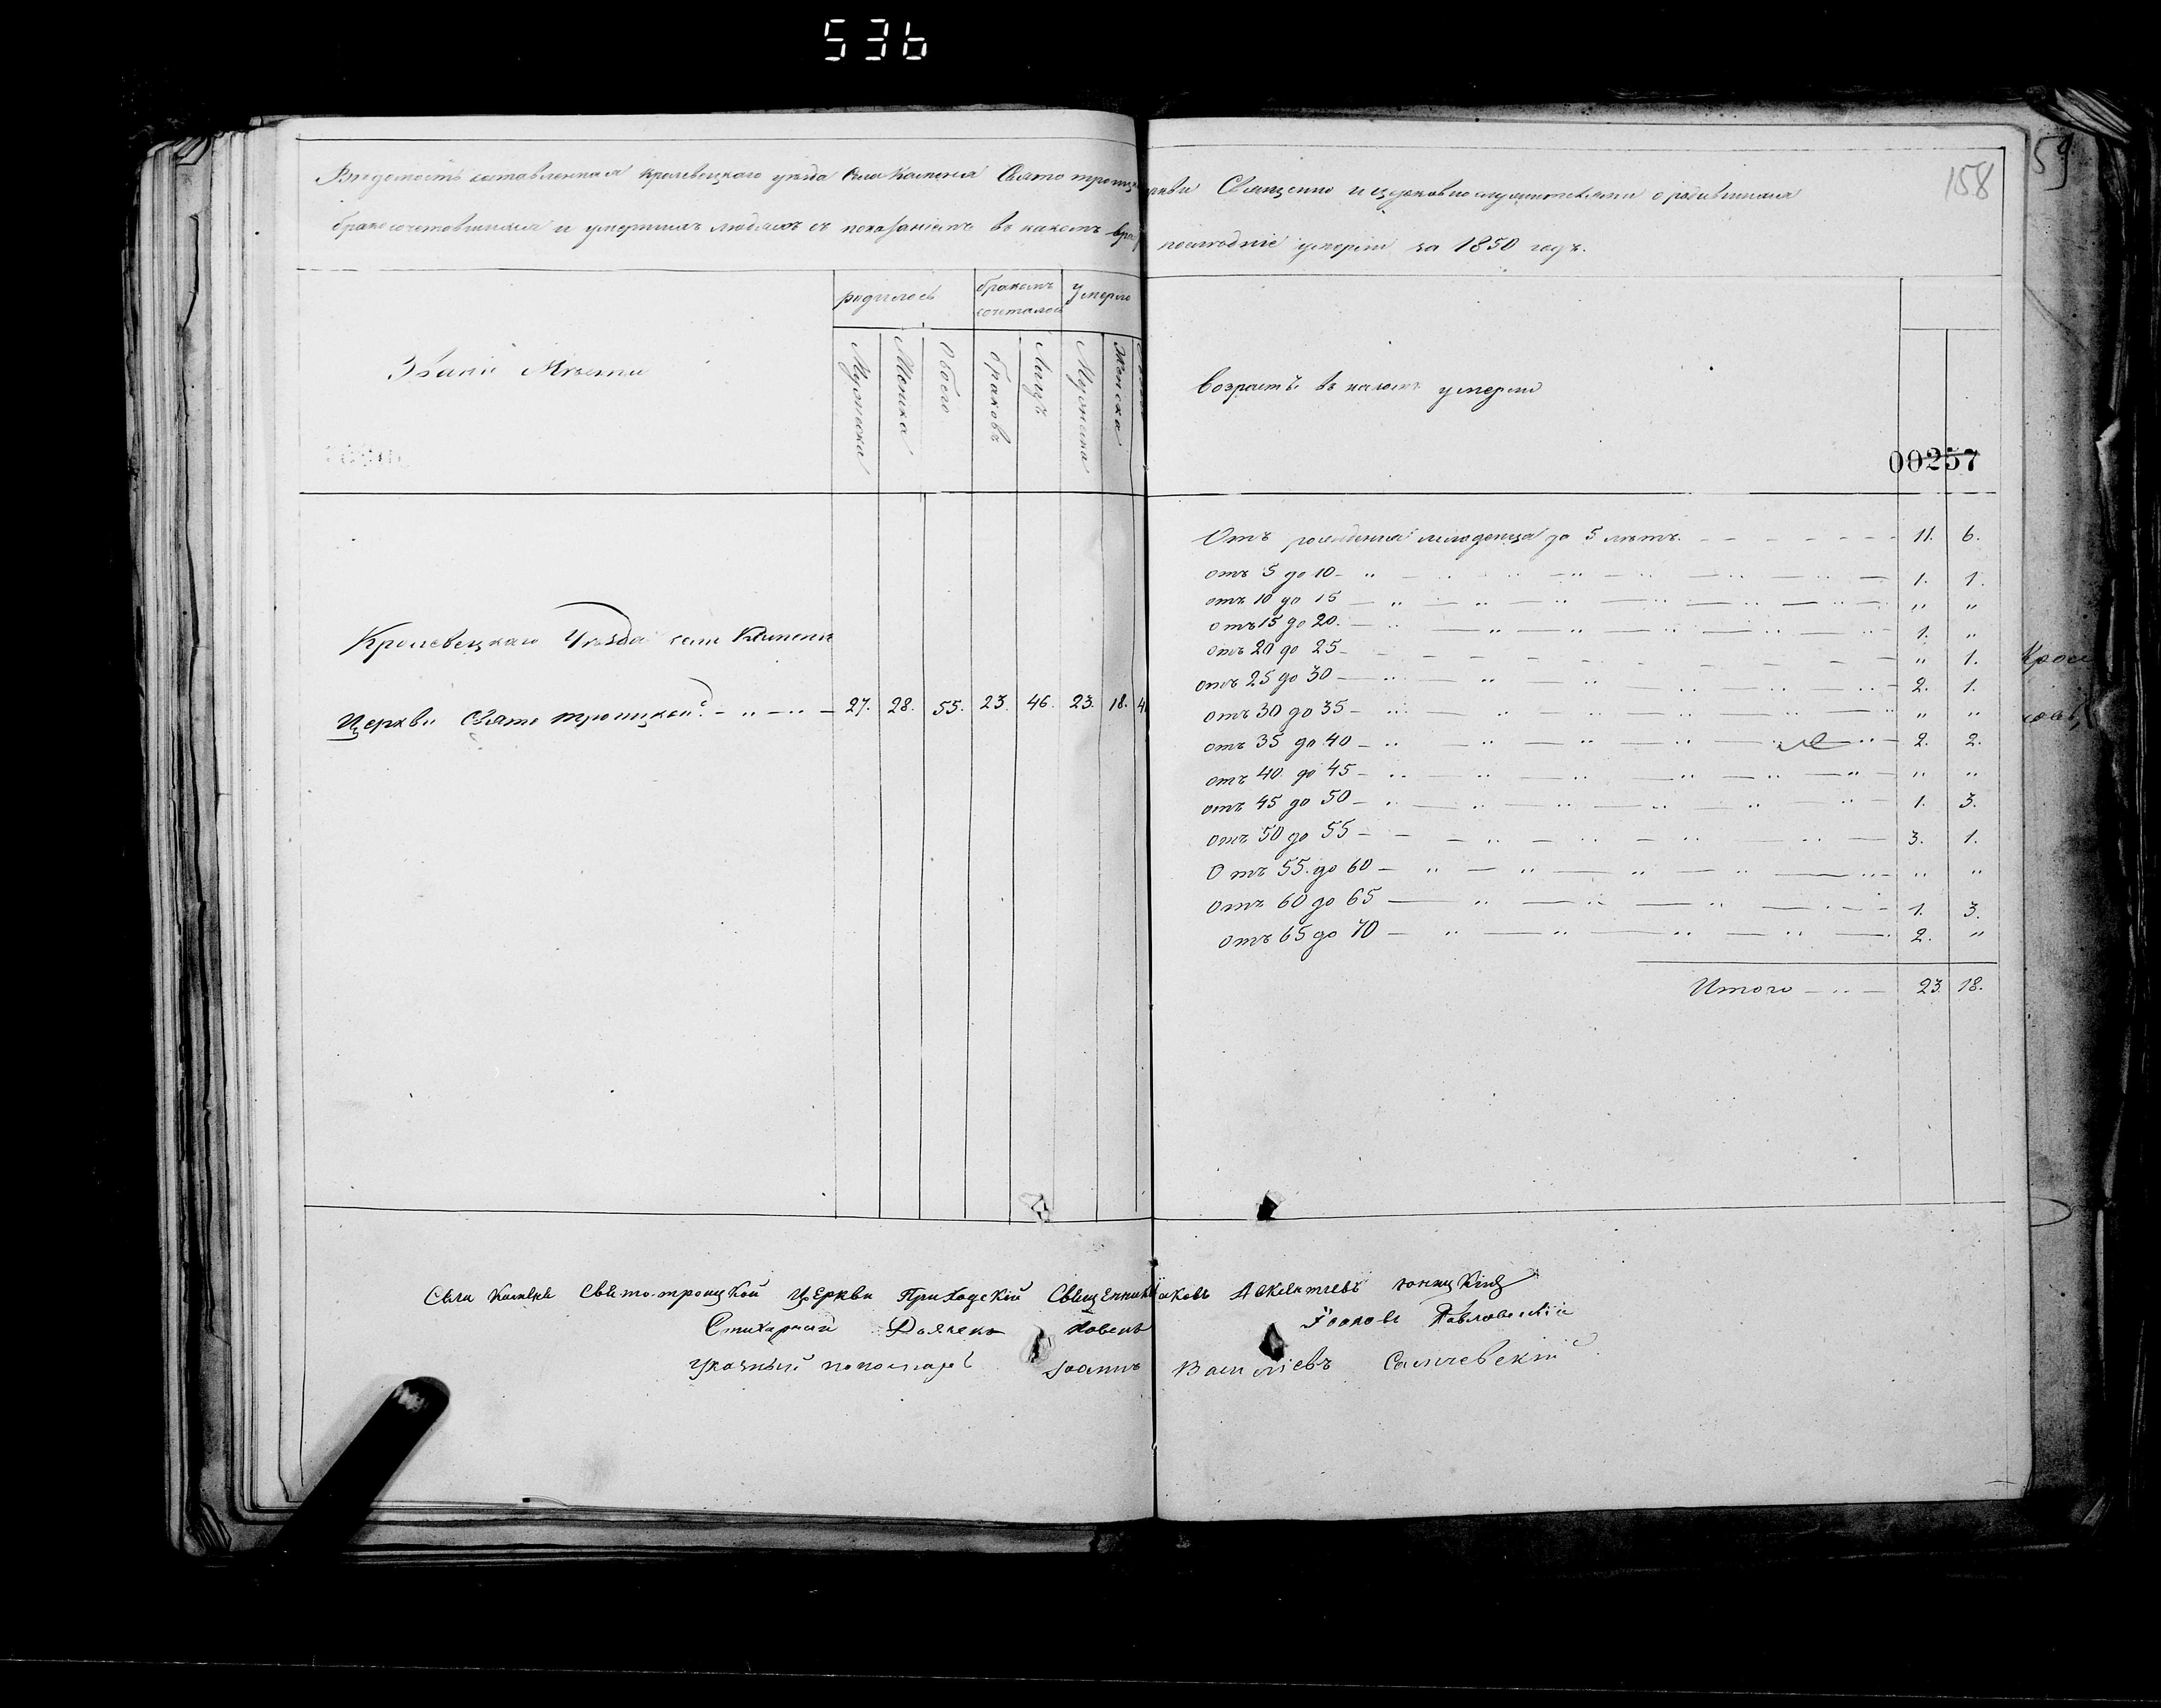 536
158
59
Вѣдомость составленная Кролевецкаго уѣзда села Каменя Свято троиц
бракосочетовшихся и умершихъ людяхъ съ показаніемъ въ какомъ
ркви Священно и церковнослужителями о родившихся
последніе умерли за 1850 годъ.
родилось
бракомъ сочеталось
умерло
Званіе Мѣста
Мужеска
Женска
Обоего
браковъ
Лицъ
Мужеска
Женска
возрастъ въ какомъ умерли
00257
Кролевецкаго Уѣзда села Каменя
Церкви Свято троицкой. 27. 28. 55. 23. 46. 23. 18. 4
Отъ рожденія младенца до 5 лѣтъ. 11. 6.
отъ 5 до 10 1. 1.
отъ 10 до 15 " "
отъ 15 до 20. 1. "
отъ 20 до 25 " 1.
отъ 25 до 30 2. 1.
отъ 30 до 35 " "
отъ 35 до 40 2. 2.
отъ 40 до 45 " "
отъ 45 до 50 1. 3.
отъ 50 до 55 3. 1.
Отъ 55. до 60 " "
отъ 60 до 65 1. 3.
отъ 65 до 70 2. "
Итого 23. 18.
Села Каменя Святотроицкой Церкви Приходскій Священник
Стихарный Дьячекъ Павловскій
Указный пономарь Іоаннъ Василіевъ